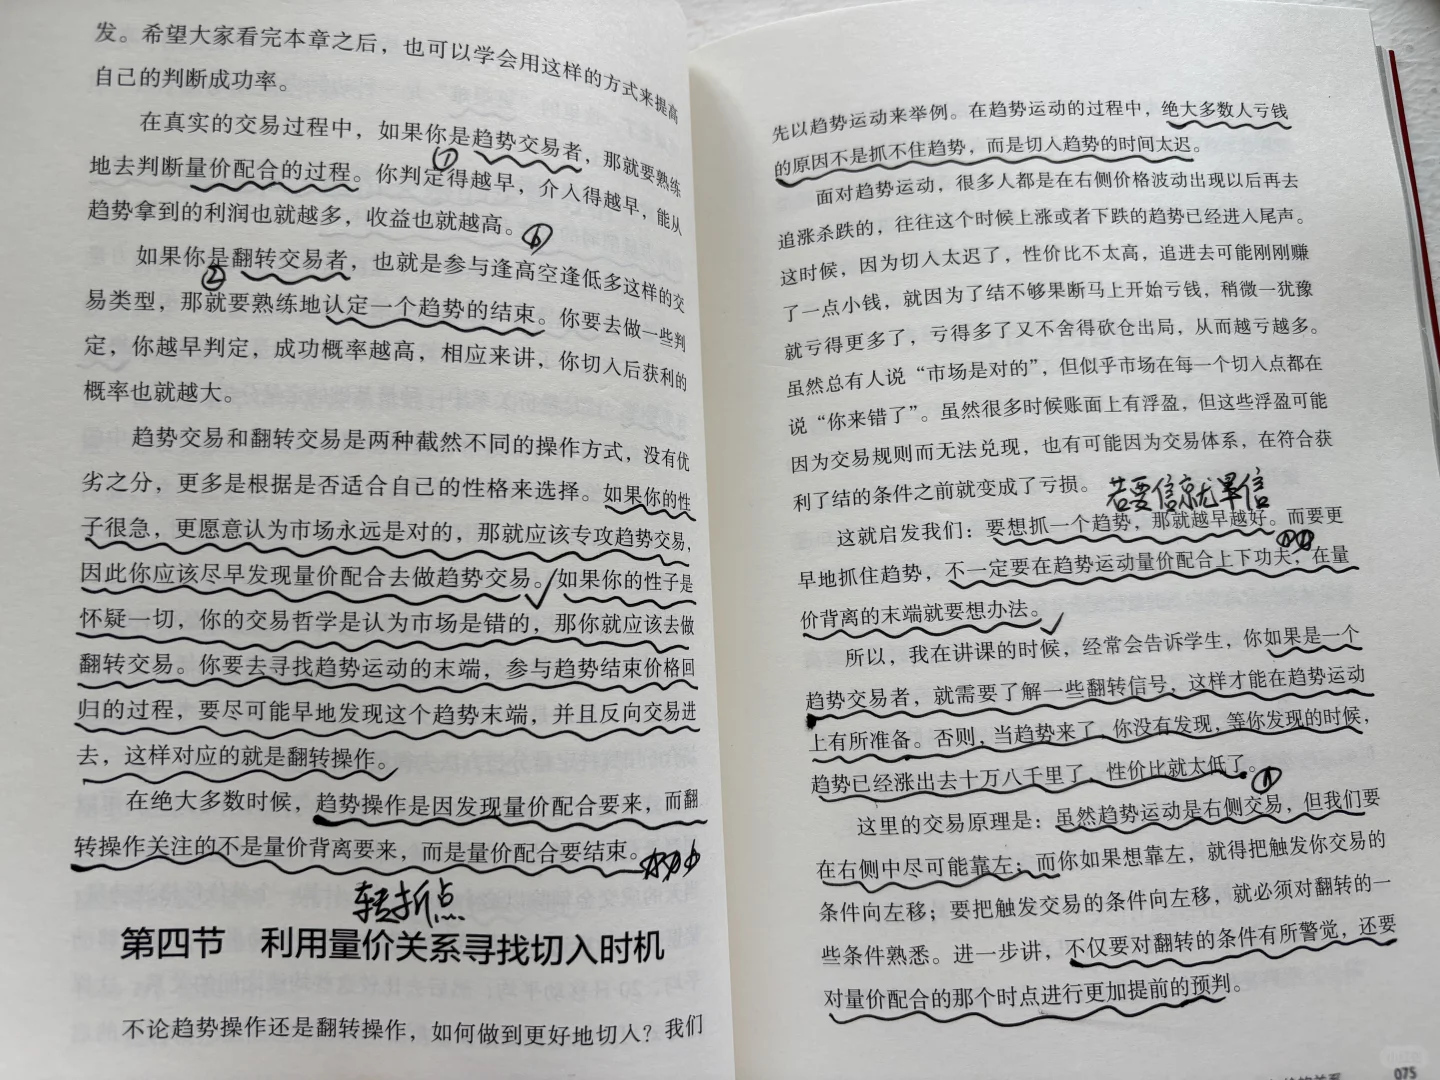 发。希望大家看完本章之后，也可以学会用这样的方式来提高
自己的判断成功率。
在真实的交易过程中，如果你是趋势交易者，那就要熟练
①
地去判断量价配合的过程。你判定得越早，介入得越早，能从
趋势拿到的利润也就越多，收益也就越高。
如果你是翻转交易者，也就是参与逢高空逢低多这样的交
②
易类型，那就要熟练地认定一个趋势的结束。你要去做一些判
定，你越早判定，成功概率越高，相应来讲，你切入后获利的
概率也就越大。
趋势交易和翻转交易是两种截然不同的操作方式，没有优
劣之分，更多是根据是否适合自己的性格来选择。如果你的性
子很急，更愿意认为市场永远是对的，那就应该专攻趋势交易，
因此你应该尽早发现量价配合去做趋势交易。如果你的性子是
怀疑一切，你的交易哲学是认为市场是错的，那你就应该去做
翻转交易。你要去寻找趋势运动的末端，参与趋势结束价格回
归的过程，要尽可能早地发现这个趋势末端，并且反向交易进
去，这样对应的就是翻转操作。
在绝大多数时候，趋势操作是因发现量价配合要来，而翻
转操作关注的不是量价背离要来，而是量价配合要结束。
转折点
第四节 利用量价关系寻找切入时机
不论趋势操作还是翻转操作，如何做到更好地切入？我们
先以趋势运动来举例。在趋势运动的过程中，绝大多数人亏钱
的原因不是抓不住趋势，而是切入趋势的时间太迟。
面对趋势运动，很多人都是在右侧价格波动出现以后再去
追涨杀跌的，往往这个时候上涨或者下跌的趋势已经进入尾声。
这时候，因为切入太迟了，性价比不太高，追进去可能刚刚赚
了一点小钱，就因为了结不够果断马上开始亏钱，稍微一犹豫
就亏得更多了，亏得多了又不舍得砍仓出局，从而越亏越多。
虽然总有人说“市场是对的”，但似乎市场在每一个切入点都在
说“你来错了”。虽然很多时候账面上有浮盈，但这些浮盈可能
因为交易规则而无法兑现，也有可能因为交易体系，在符合获
利了结的条件之前就变成了亏损。
若要信就早信
这就启发我们：要想抓一个趋势，那就越早越好。而要更
早地抓住趋势，不一定要在趋势运动量价配合上下功夫，在量
价背离的末端就要想办法。
所以，我在讲课的时候，经常会告诉学生，你如果是一个
趋势交易者，就需要了解一些翻转信号，这样才能在趋势运动
上有所准备。否则，当趋势来了，你没有发现，等你发现的时候，
趋势已经涨出去十万八千里了，性价比就太低了。
这里的交易原理是：虽然趋势运动是右侧交易，但我们要
在右侧中尽可能靠左；而你如果想靠左，就得把触发你交易的
条件向左移；要把触发交易的条件向左移，就必须对翻转的一
些条件熟悉。进一步讲，不仅要对翻转的条件有所警觉，还要
对量价配合的那个时点进行更加提前的预判。
075